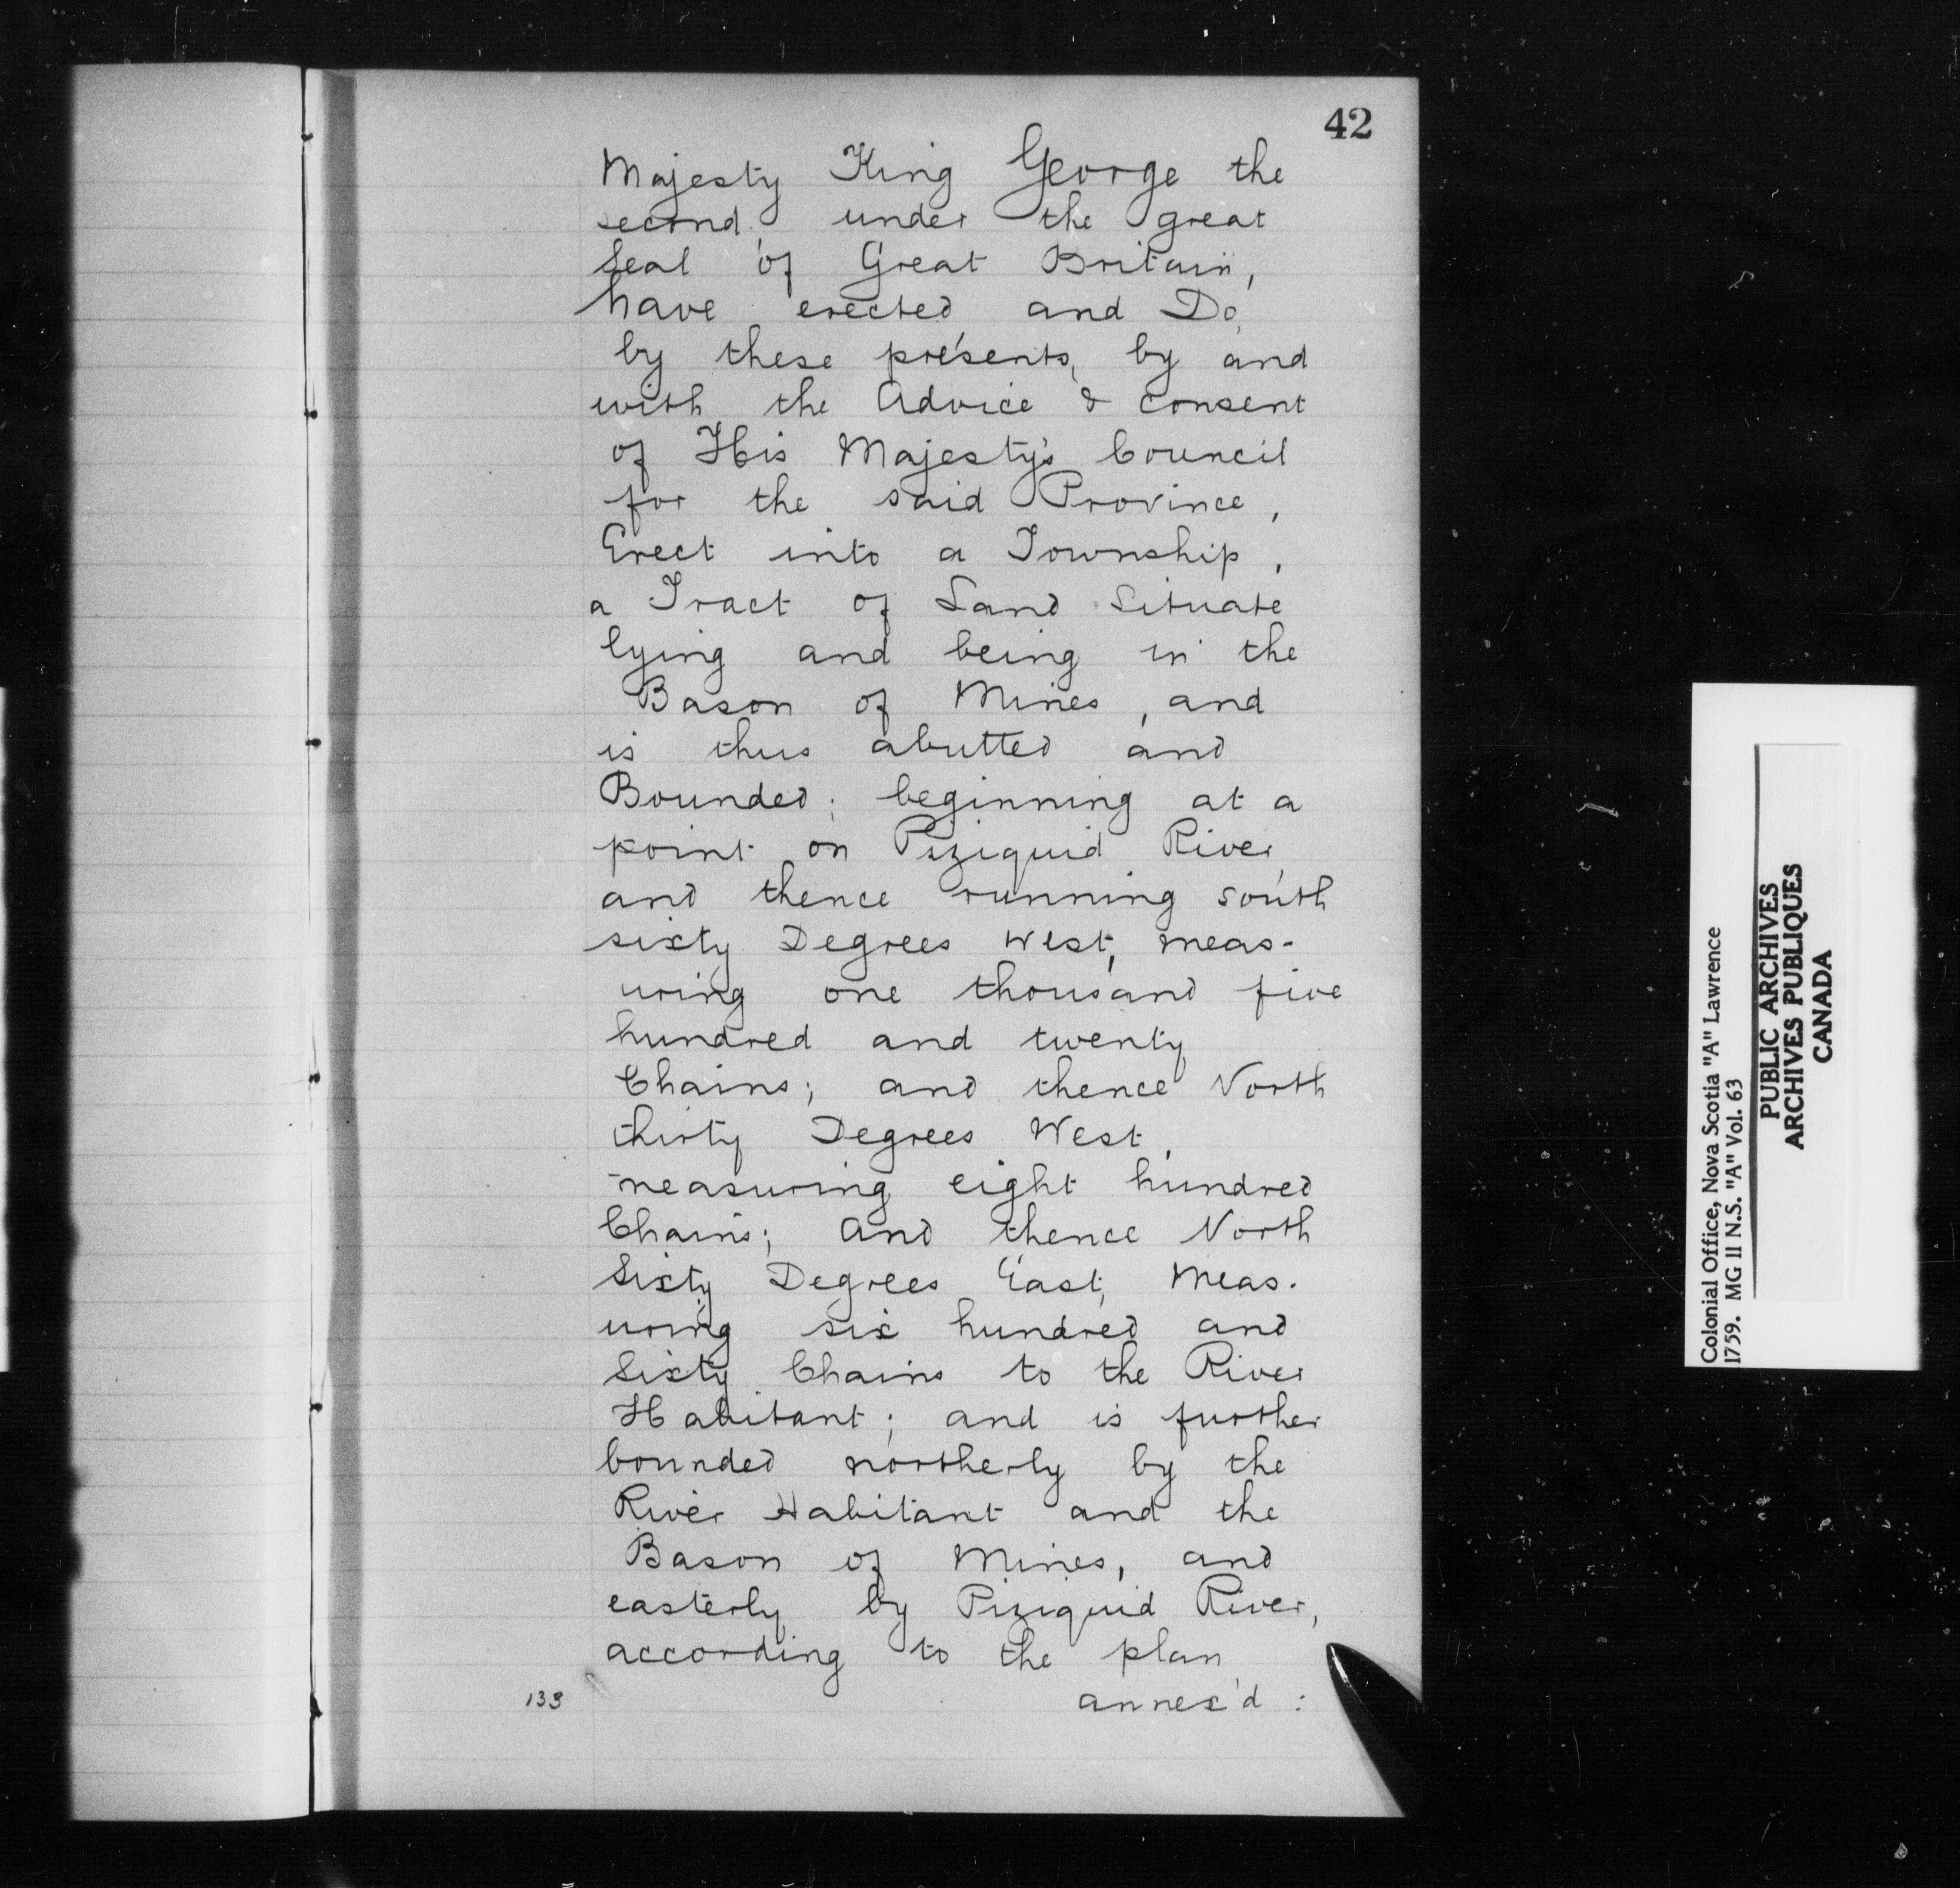 42
Majesty King George the
second under the great
Seal of Great Britain,
have erected and Do,
by these presents, by and
with the Advice & consent
of His Majesty's Council
for the said Province,
Erect into a Township,
a Tract of Land Situate
lying and being in the
Bason of Mines, and
is thus abutted and
Bounded; beginning at a
point on Piziquid River,
and thence running south
sixty Degrees West, meas-
uring one thousand five
hundred and twenty
Chains; and thence North
thirty Degrees West,
measuring eight hundred
Chains; And thence North
Sixty Degrees East, Meas-
uring six hundred and
Sixty Chains to the River
Habitant; and is further
bounded northerly by the
River Habitant and the
Bason of Mines, and
easterly by Piziquid River,
according to the plan
annex'd :
133
Colonial Office, Nova Scotia "A" Lawrence
1759. MG 11 N.S. "A" Vol. 63
PUBLIC ARCHIVES
ARCHIVES PUBLIQUES
CANADA